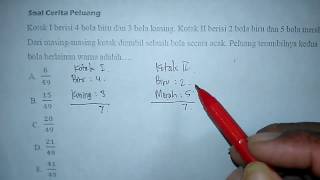 Soal Cerita Peluang
Kotak I berisi 4 bola biru dan 3 bola kuning. Kotak II berisi 2 bola biru dan 5 bola merah
Dari masing-masing kotak diambil sebuah bola secara acak. Peluang terambilnya kedua
bola berlainan warna adalah....
A. 6/49
B. 15/49
C. 20/49
D. 21/49
E. 41/49
Kotak I.
Biru : 4.
Kuning : 3
7.
Kotak II.
Biru : 2.
Merah : 5
7.